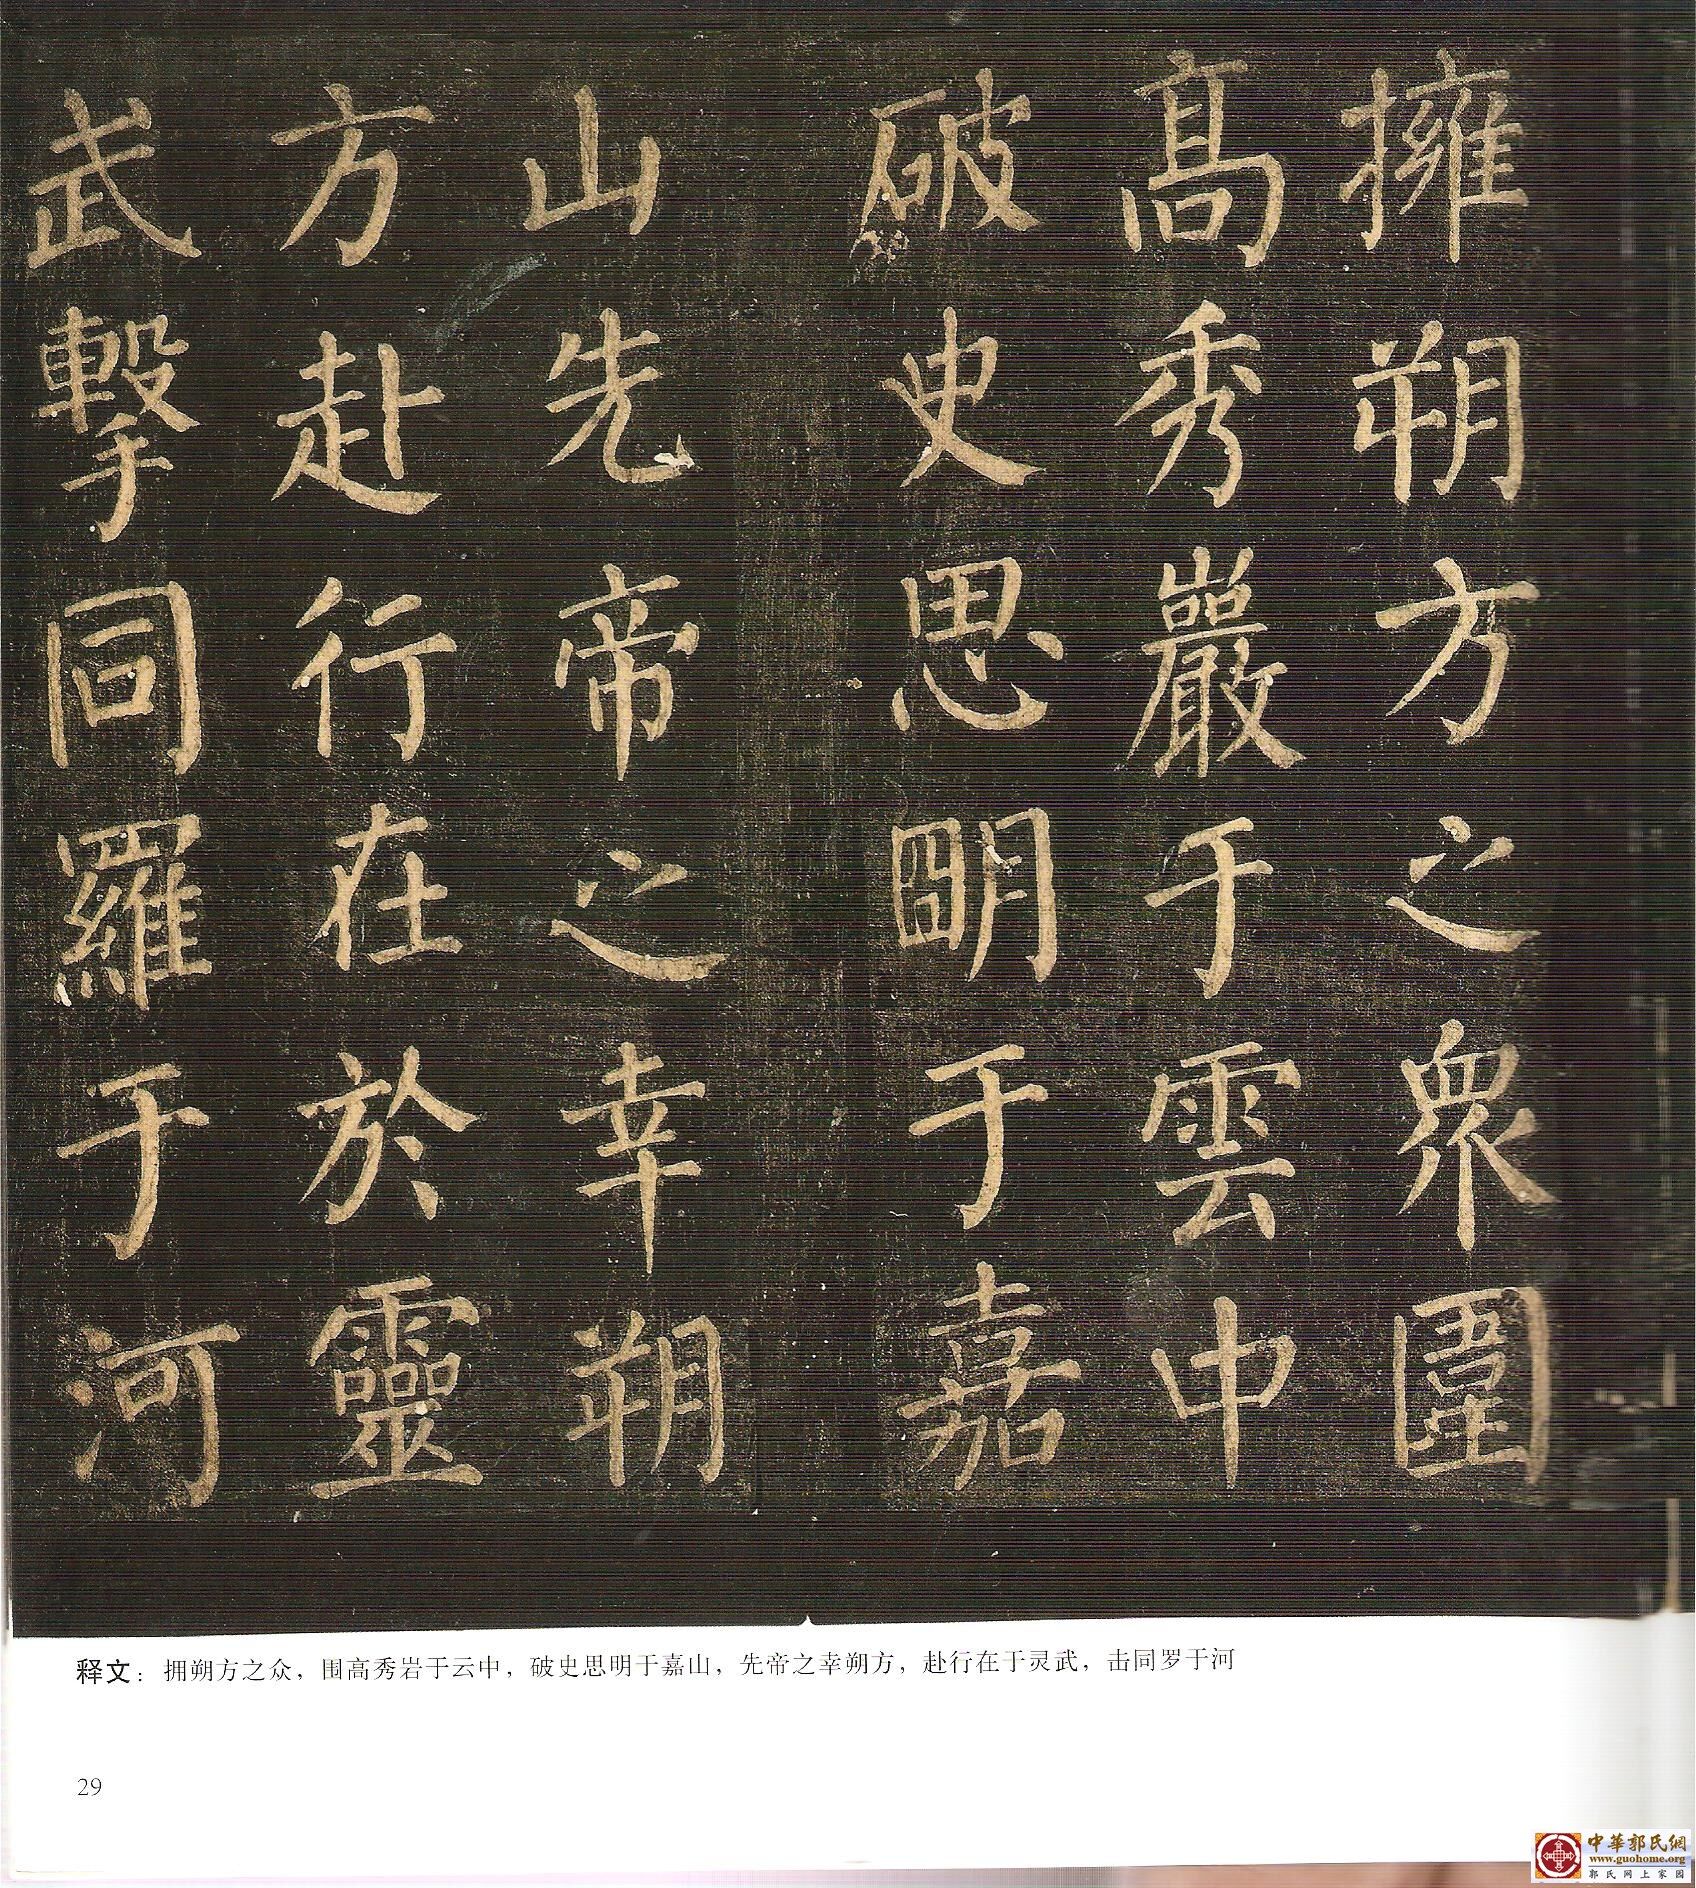 擁朔方之眾圍
高秀巖于雲中
破史思明于嘉
山先帝之幸朔
方赴行在於靈
武擊同羅于河
释文：拥朔方之众，围高秀岩于云中，破史思明于嘉山，先帝之幸朔方，赴行在于灵武，击同罗于河
29
中華郭氏網
www.guohome.org
郭氏网上家园